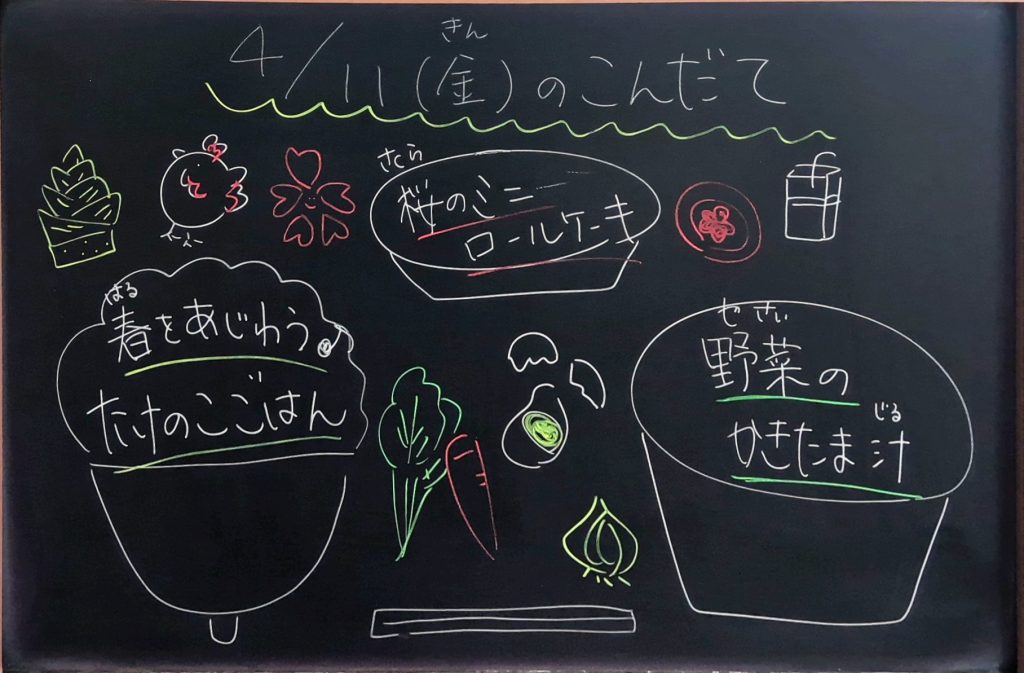 きん
4/11(金)のこんだて
さくら
桜のミニ
ロールケーキ
はる
春をあじわう♪
たけのこごはん
やさい
野菜の
じる
かきたま汁